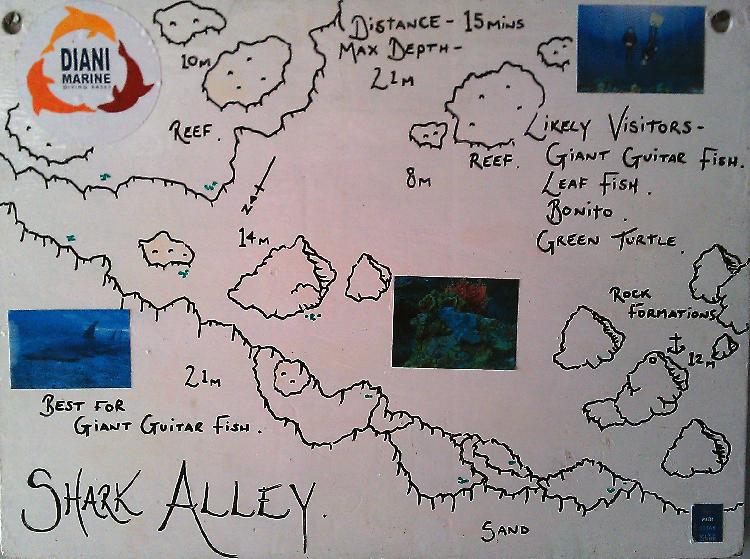 DIANI
MARINE
DIVING BASE
DISTANCE - 15 MINS
MAX DEPTH -
21M
10M
REEF.
REEF.
8M
LIKELY VISITORS -
GIANT GUITAR FISH.
LEAF FISH.
BONITO.
GREEN TURTLE.
N
14M
ROCK
FORMATIONS
12M
21M
BEST FOR
GIANT GUITAR FISH.
SHARK ALLEY.
SAND